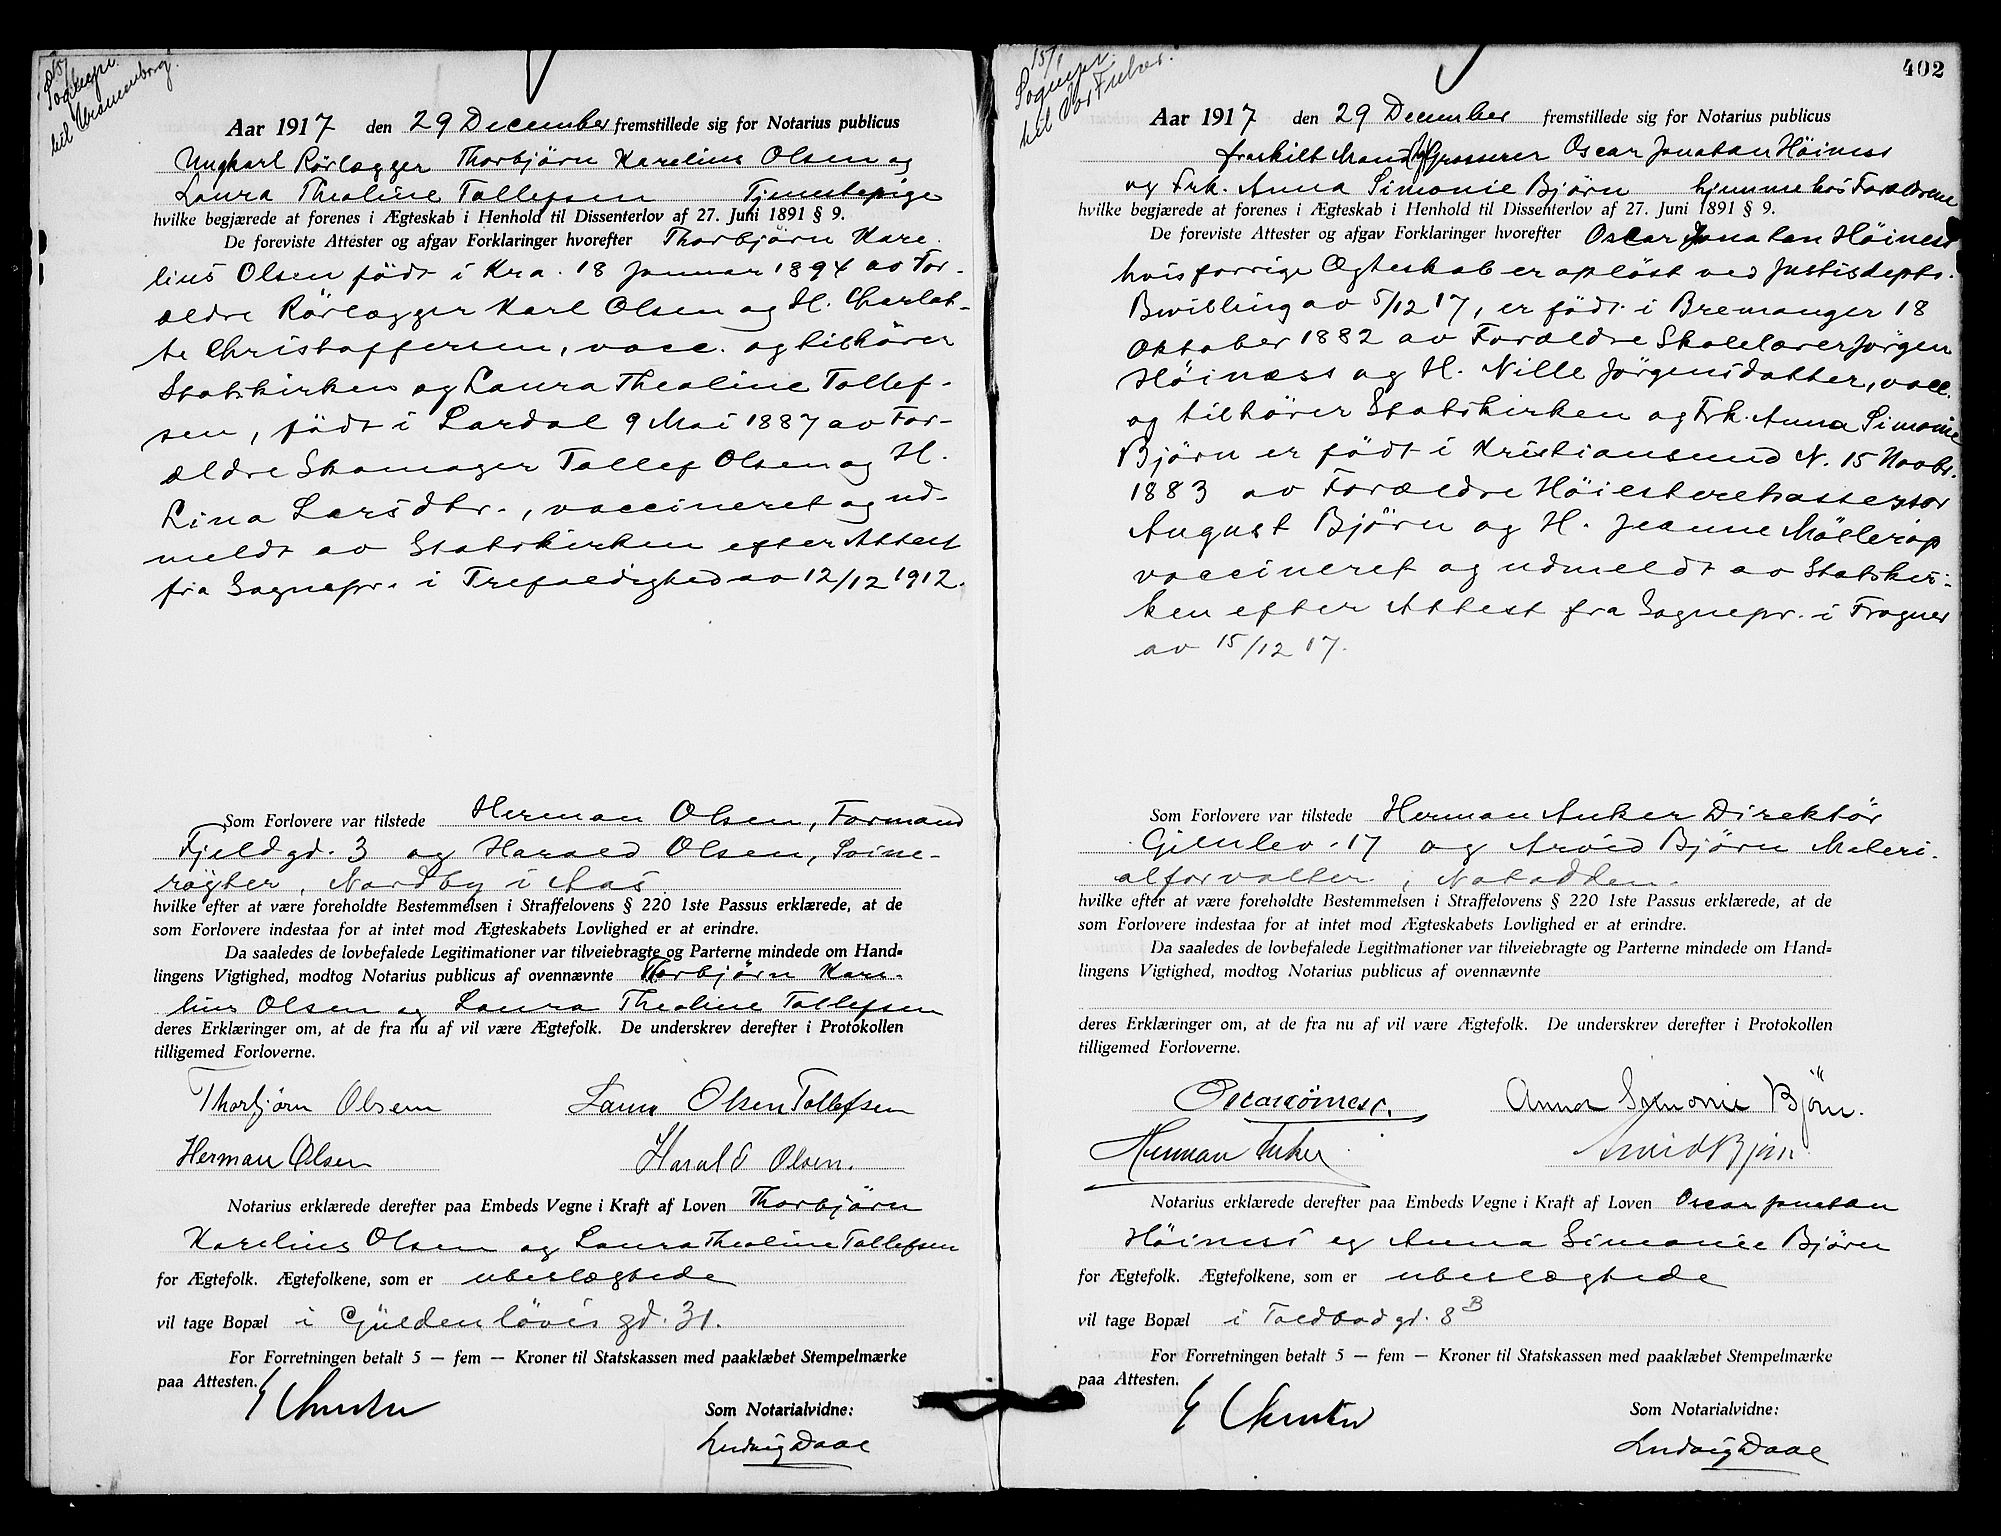 Sognepr.
til Uranienborg.
Aar 1917 den 29 December fremstillede sig for Notarius publicus
Ungkarl Rörlægger Thorbjörn Karelius Olsen og
Laura Thealine Tollefsen Tjenestepige
hvilke begjærede at forenes i Ægteskab i Henhold til Dissenterlov af 27. Juni 1891 § 9.
De foreviste Attester og afgav Forklaringer hvorefter Thorbjörn Kare-
lius Olsen födt i Kra. 18 Januar 1894 av For-
ældre Rörlægger Karl Olsen og H. Charlot-
te Christoffersen, vacc. og tilhörer
Statskirken og Laura Thealine Tollef-
sen, födt i Lardal 9 Mai 1887 av For-
ældre Skomager Tollef Olsen og H.
Lina Larsdtr., vaccineret og ud-
meldt av Statskirken efter Attest
fra Sognepr. i Trefoldighed av 12/12 1912.
Som Forlovere var tilstede Herman Olsen, Formand
Fjeldgd. 3 og Harald Olsen, Svine-
røgter, Nordby i Aas
hvilke efter at være foreholdte Bestemmelsen i Straffelovens § 220 1ste Passus erklærede, at de
som Forlovere indestaa for at intet mod Ægteskabets Lovlighed er at erindre.
Da saaledes de lovbefalede Legitimationer var tilveiebragte og Parterne mindede om Hand-
lingens Vigtighed, modtog Notarius publicus af ovennævnte Thorbjörn Kare-
lius Olsen og Laura Thealine Tollefsen
deres Erklæringer om, at de fra nu af vil være Ægtefolk. De underskrev derefter i Protokollen
tilligemed Forloverne.
Thorbjörn Olsen Laura Olsen Tollefsen
Herman Olsen Harald Olsen.
Notarius erklærede derefter paa Embeds Vegne i Kraft af Loven Thorbjörn
Karelius Olsen og Laura Thealine Tollefsen
for Ægtefolk. Ægtefolkene, som er ubeslægtede
vil tage Bopæl i Gyldenlöves gd. 31.
For Forretningen betalt 5 — fem — Kroner til Statskassen med paaklæbet Stempelmærke
paa Attesten.
Som Notarialvidne:
Ludvig Daae
402
15/1
Sognepr.
til Vor Frelser.
Aar 1917 den 29 December fremstillede sig for Notarius publicus
fraskilt Mand Grosserer Oscar Jonatan Höiness
og Frk. Anna Simonie Björn hjemme hos Forældrene
hvilke begjærede at forenes i Ægteskab i Henhold til Dissenterlov af 27. Juni 1891 § 9.
De foreviste Attester og afgav Forklaringer hvorefter Oscar Jonatan Höiness
hvis forrige Ægteskab er oplöst ved Justisdepts.
Bevilling av 5/12 17, er födt i Bremanger 18
Oktober 1882 av Forældre Skolelærer Jörgen
Höinæss og H. Nille Jörgensdatter, vacc.
og tilhörer Statskirken og Frk. Anna Simonie
Björn er födt i Kristiansund N. 15 Novbr.
1883 av Forældre Höiesteretsassessor
August Björn og H. Jeanne Möllerop
vaccineret og udmeldt av Statskir-
ken efter Attest fra Sognepr. i Frogner
av 15/12 17.
Som Forlovere var tilstede Herman Anker Direktör
Gimlev. 17 og Arvid Björn Materi-
alforvalter, Notodden.
hvilke efter at være foreholdte Bestemmelsen i Straffelovens § 220 1ste Passus erklærede, at de
som Forlovere indestaa for at intet mod Ægteskabets Lovlighed er at erindre.
Da saaledes de lovbefalede Legitimationer var tilveiebragte og Parterne mindede om Hand-
lingens Vigtighed, modtog Notarius publicus af ovennævnte
deres Erklæringer om, at de fra nu af vil være Ægtefolk. De underskrev derefter i Protokollen
tilligemed Forloverne.
Anna Simonie Björn.
Herman Anker Arvid Björn
Notarius erklærede derefter paa Embeds Vegne i Kraft af Loven Oscar Jonatan
Höiness og Anna Simonie Björn
for Ægtefolk. Ægtefolkene, som er ubeslægtede
vil tage Bopæl i Toldbod gd. 8B
For Forretningen betalt 5 — fem — Kroner til Statskassen med paaklæbet Stempelmærke
paa Attesten.
Som Notarialvidne:
Ludvig Daae